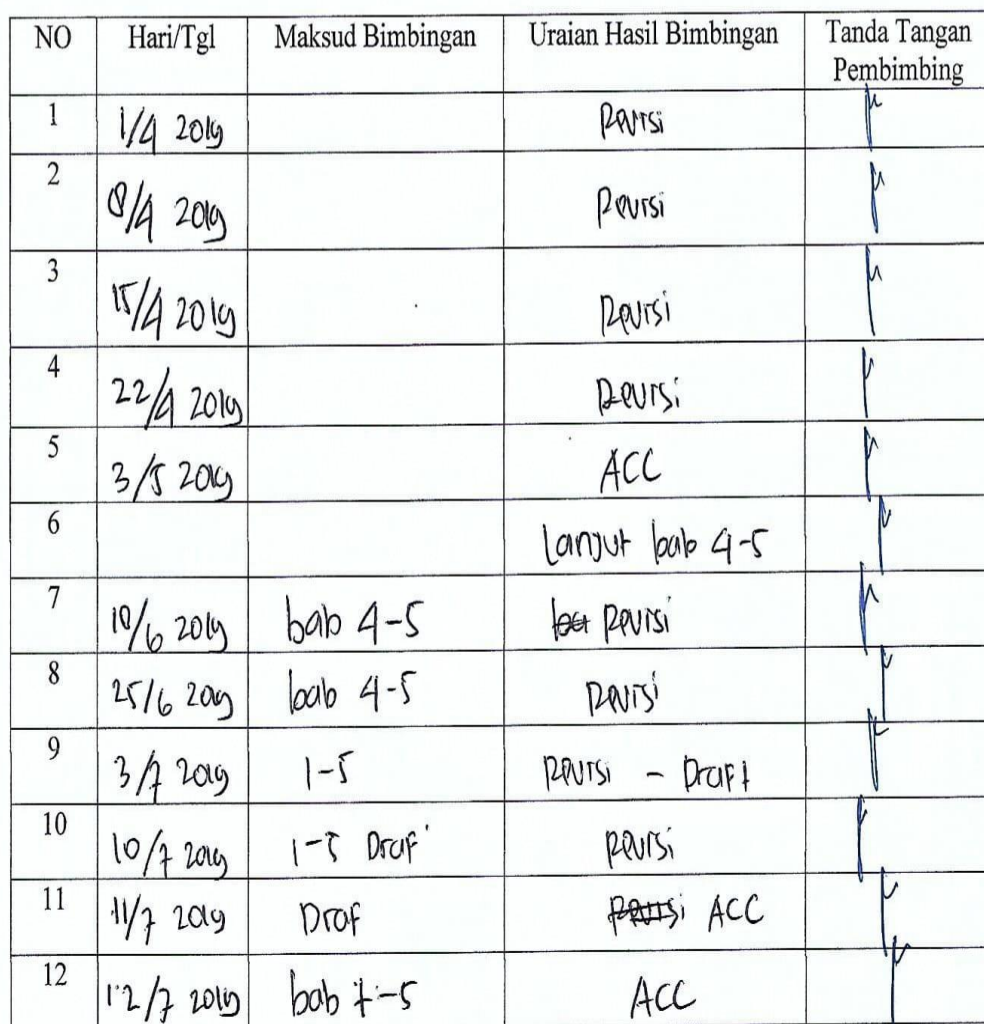 NO Hari/Tgl Maksud Bimbingan Uraian Hasil Bimbingan Tanda Tangan
Pembimbing
1 1/4 2019 Revisi
2 8/4 2019 Revisi
3 15/4 2019 Revisi
4 22/4 2019 Revisi
5 3/5 2019 ACC
6 Lanjut bab 4-5
7 10/6 2019 bab 4-5 Revisi
8 25/6 2019 bab 4-5 Revisi
9 3/7 2019 1-5 Revisi - Draft
10 10/7 2019 1-5 Draf
Revisi
11 11/7 2019 Draf Revisi ACC
12 12/7 2019 bab 1-5 ACC